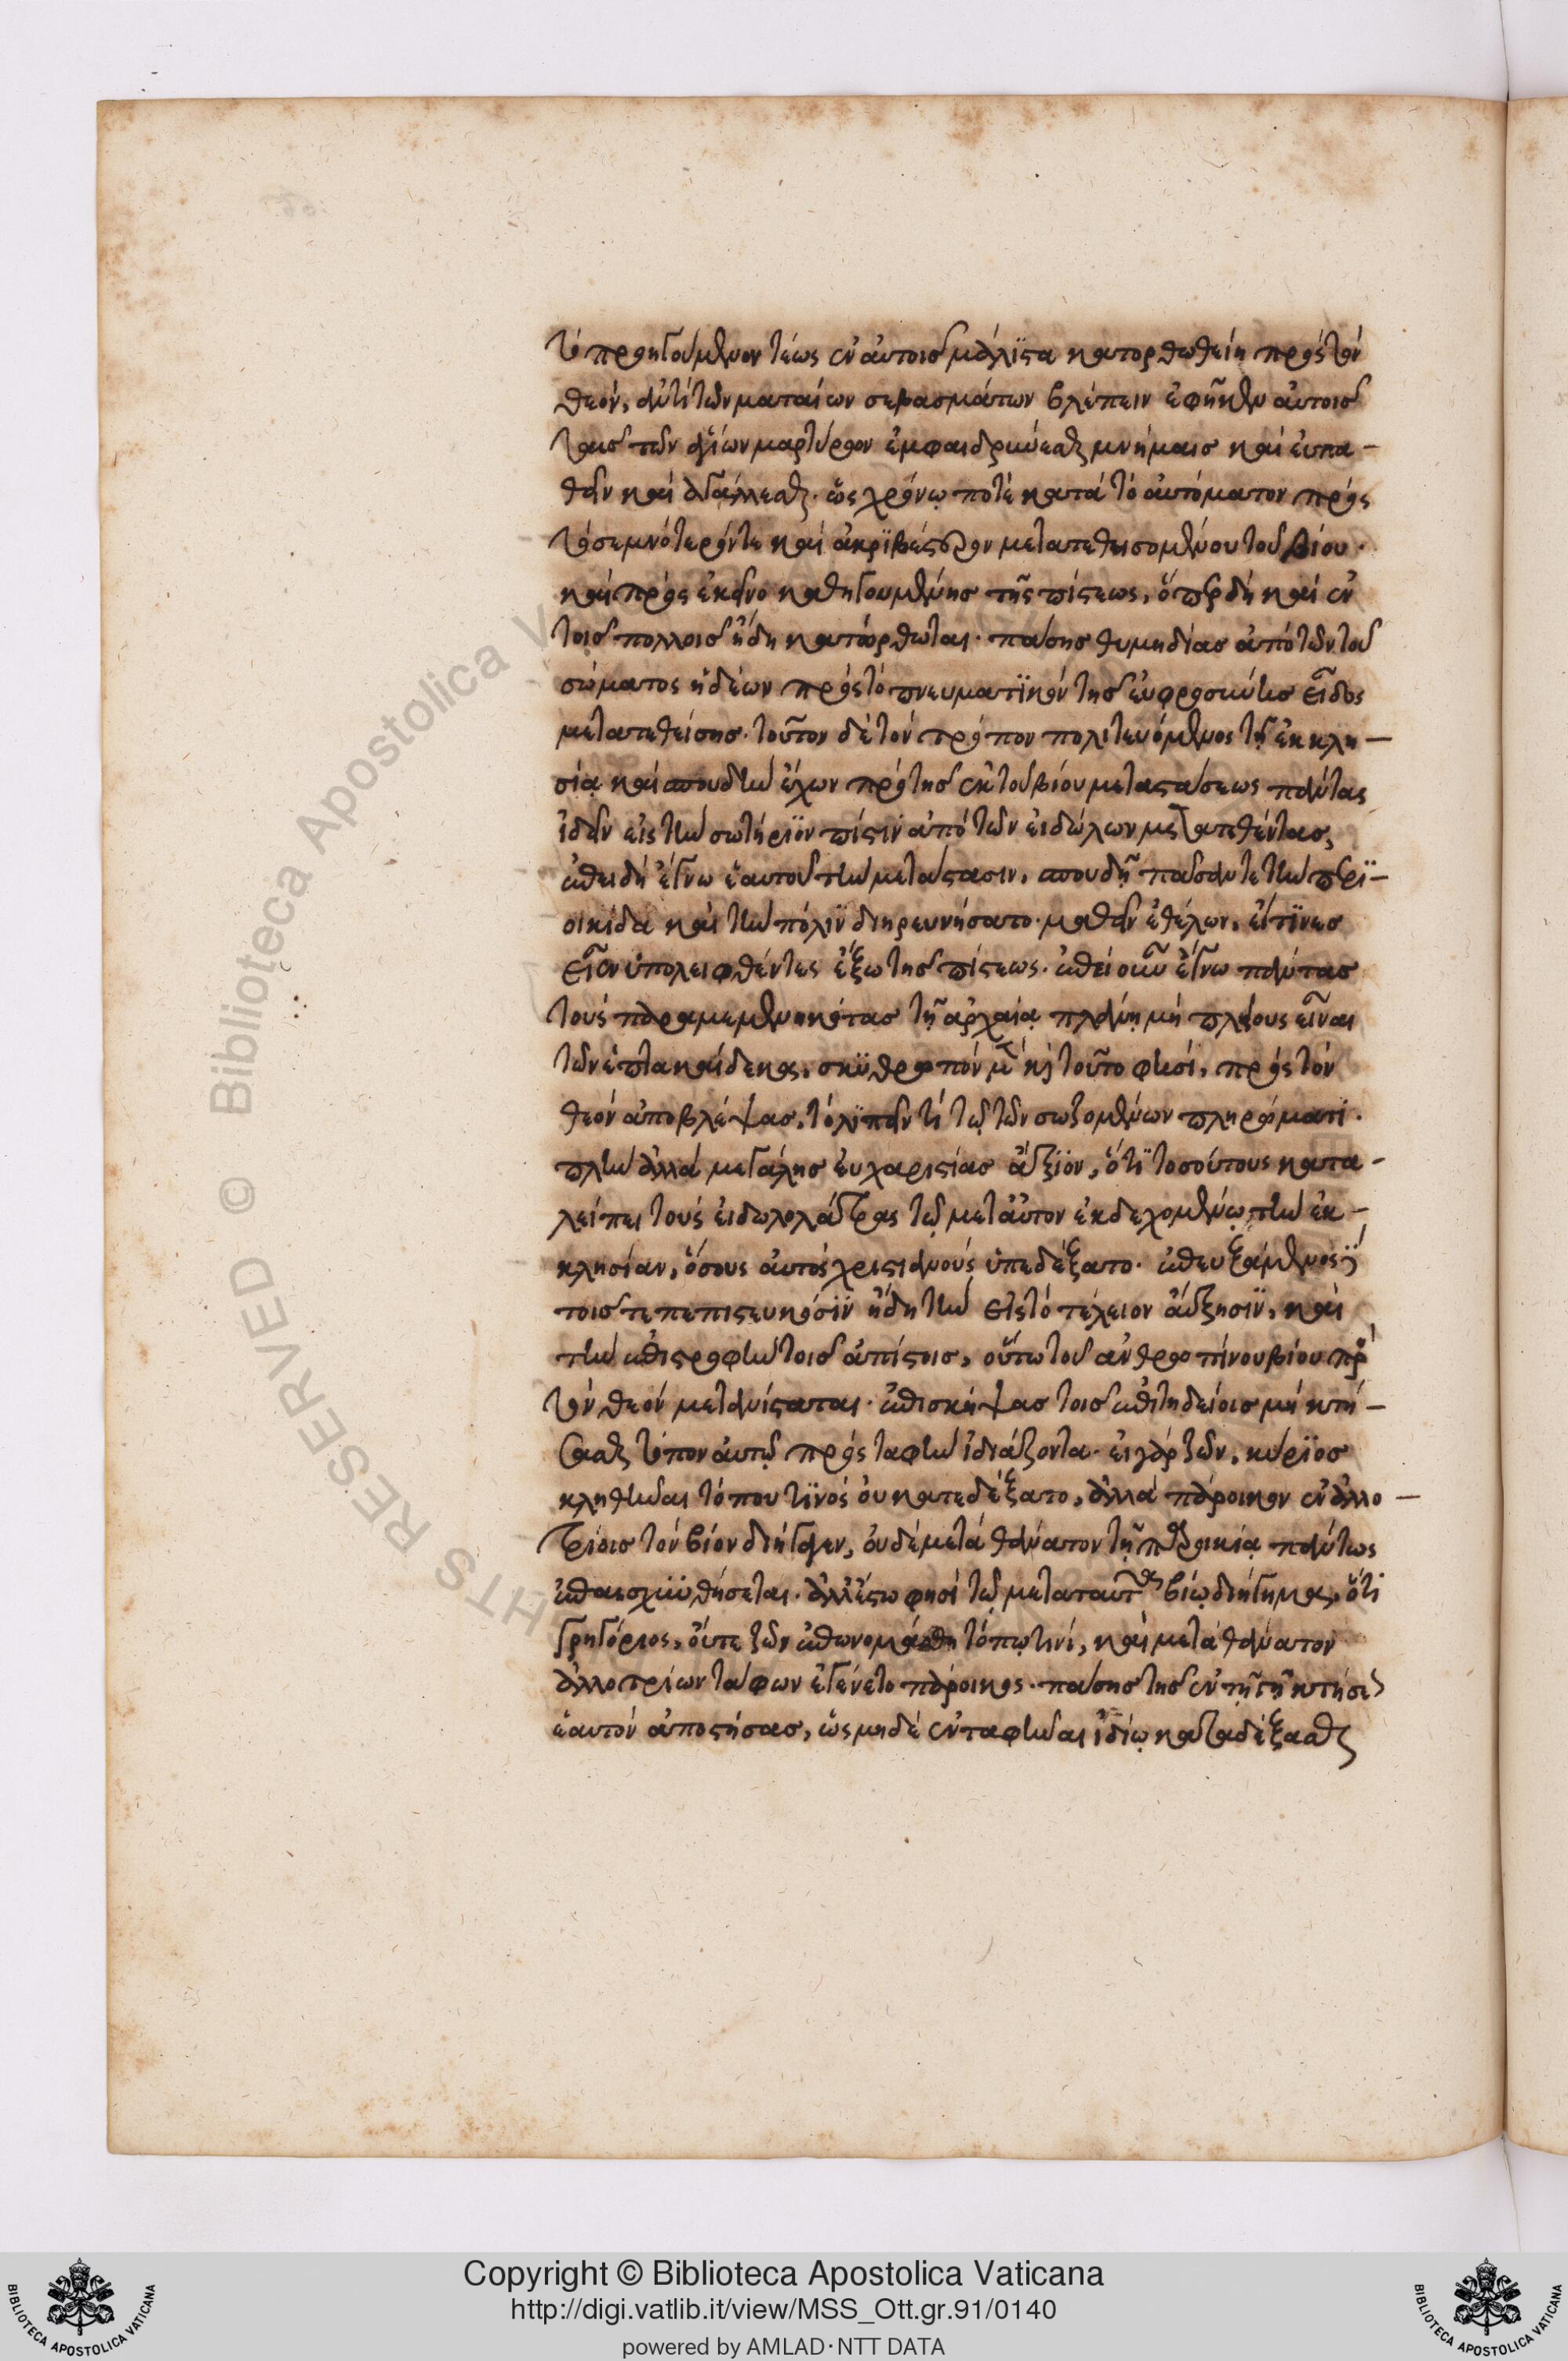 τὸ προηγούμενον τέως ἐν αὐτοῖς μάλιστα κατορθωθείη πρὸς τὸν
θεόν, ἀντὶ τῶν ματαίων σεβασμάτων βλέπειν ἐφῆκεν αὐτοῖς
ταῖς τῶν ἁγίων μαρτύρων ἐμφαιδρύνεσθαι μνήμαις καὶ εὐπα-
θεῖν καὶ ἀγάλλεσθαι. ὡς χρόνῳ ποτὲ κατὰ τὸ αὐτόματον πρὸς
τὸ σεμνότερόν τε καὶ ἀκριβέστερον μεταπεθεισομένου τοῦ βίου.
καὶ πρὸς ἐκεῖνο καθηγουμένης τῆς πίστεως, ὅπερ δὴ καὶ ἐν
τοῖς πολλοῖς ἤδη κατώρθωται. πάσης θυμηδίας ἀπὸ τῶν τοῦ
σώματος ἡδέων πρὸς τὸ πνευματικὸν τῆς εὐφροσύνης εἶδος
μετατεθείσης. τοῦτον δὲ τὸν τρόπον πολιτευόμενος τῇ ἐκκλη-
σίᾳ καὶ σπουδὴν ἔχων πρὸ τῆς ἐκ τοῦ βίου μεταστάσεως πάντας
ἰδεῖν εἰς τὴν σωτήριον πίστιν ἀπὸ τῶν εἰδώλων μετατεθέντας,
ἐπειδὴ ἔγνω ἑαυτοῦ τὴν μετάστασιν, σπουδῇ πᾶσάν τε τὴν περι-
οικίδα καὶ τὴν πόλιν διηρευνήσατο. μαθεῖν ἐθέλων, εἴ τινες
εἶεν ὑπολειφθέντες ἔξω τῆς πίστεως. ἐπεὶ οὖν ἔγνω πάντας
τοὺς παραμεμενηκότας τῇ ἀρχαίᾳ πλάνῃ μὴ πλείους εἶναι
τῶν ἑπτακαίδεκα, σκυθρωπὸν μὲν καὶ τοῦτο φησί, πρὸς τὸν
θεὸν ἀποβλέψας, τὸ λιπεῖν τί τῷ τῶν σωζομένων πληρώματι.
πλὴν ἀλλὰ μεγάλης εὐχαριστίας ἄξιον, ὅτι τοσούτους κατα-
λείπει τοὺς εἰδωλολάτρας τῷ μετ αὐτὸν ἐκδεχομένῳ τὴν ἐκ-
κλησίαν, ὅσους αὐτὸς χριστιανοὺς ὑπεδέξατο. ἐπευξάμενος
τοῖς τε πεπιστευκόσιν ἤδη τὴν εἰς τὸ τέλειον αὔξησιν, καὶ
τὴν ἐπιστροφὴν τοῖς ἀπίστοις, οὕτω τοῦ ἀνθρωπίνου βίου πρὸς
τὸν θεὸν μετανίσταται. ἐπισκήψας τοῖς ἐπιτηδείοις μὴ κτή-
σασθαι τόπον αὐτῷ πρὸς ταφὴν ἰδιάζοντα. εἰ γὰρ ζῶν, κύριος
κληθῆναι τόπου τινὸς οὐ κατεδέξατο, ἀλλὰ πάροικον ἐν ἀλλο-
τρίοις τὸν βίον διήγαγεν, οὐδὲ μετὰ θάνατον τῇ παροικίᾳ πάντως
ἐπαισχυνθήσεται. ἀλλ ἔστω φησὶ τῷ μετὰ ταῦτα βίῳ διήγημα, ὅτι
Γρηγόριος, οὔτε ζῶν ἐπωνομάσθη τόπῳ τινί, καὶ μετὰ θάνατον
ἀλλοτρίων τάφων ἐγένετο πάροικος. πάσης τῆς ἐν τῇ γῇ κτήσεως
ἑαυτὸν ἀποστήσας, ὡς μηδὲ ἐνταφῆναι ἰδίῳ καταδέξασθαι
Copyright © Biblioteca Apostolica Vaticana
http://digi.vatlib.it/view/MSS_Ott.gr.91/0140
powered by AMLAD·NTT DATA